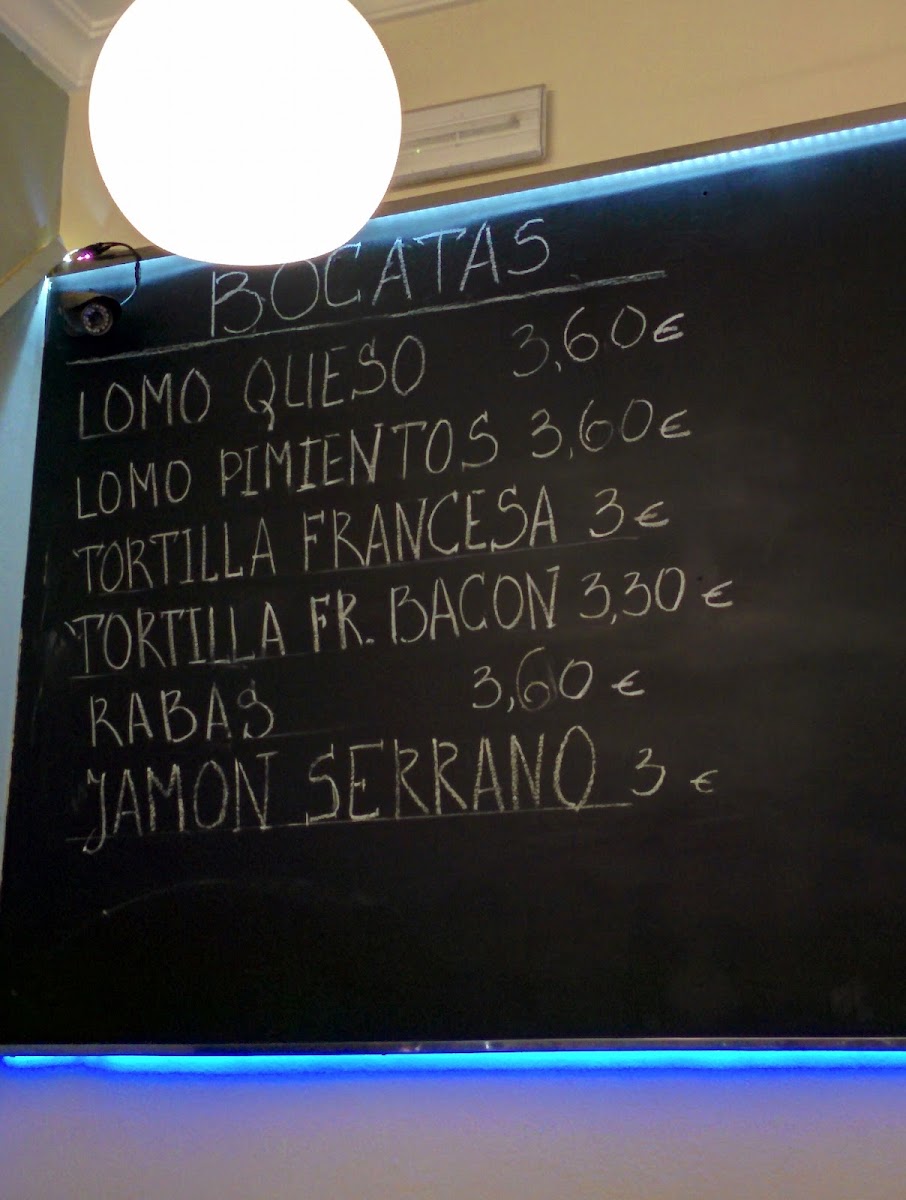 BOCATAS
LOMO QUESO 3,60€
LOMO PIMIENTOS 3,60€
TORTILLA FRANCESA 3€
TORTILLA FR. BACON 3,30€
RABAS 3,60€
JAMON SERRANO 3€